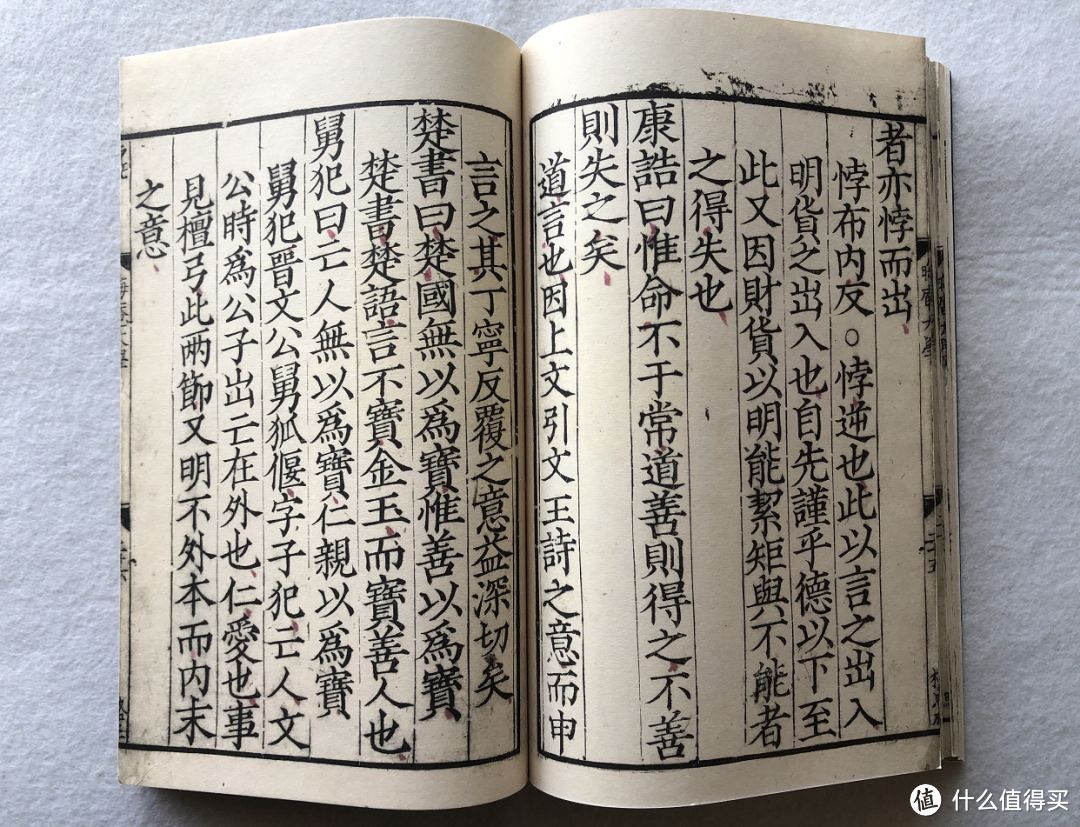 者亦悖而出
悖布內反○悖逆也此以言之出入
明貨之出入也自先謹乎德以下至
此又因財貨以明能絜矩與不能者
之得失也
康誥曰惟命不于常道善則得之不善
則失之矣
道言也因上文引文王詩之意而申
言之其丁寧反覆之意益深切矣
楚書曰楚國無以爲寶惟善以爲寶
楚書楚語言不寶金玉而寶善人也
舅犯曰亡人無以爲寶仁親以爲寶
舅犯晉文公舅狐偃字子犯亡人文
公時爲公子出亡在外也仁愛也事
見檀弓此两節又明不外本而内末
之意
值 什么值得买